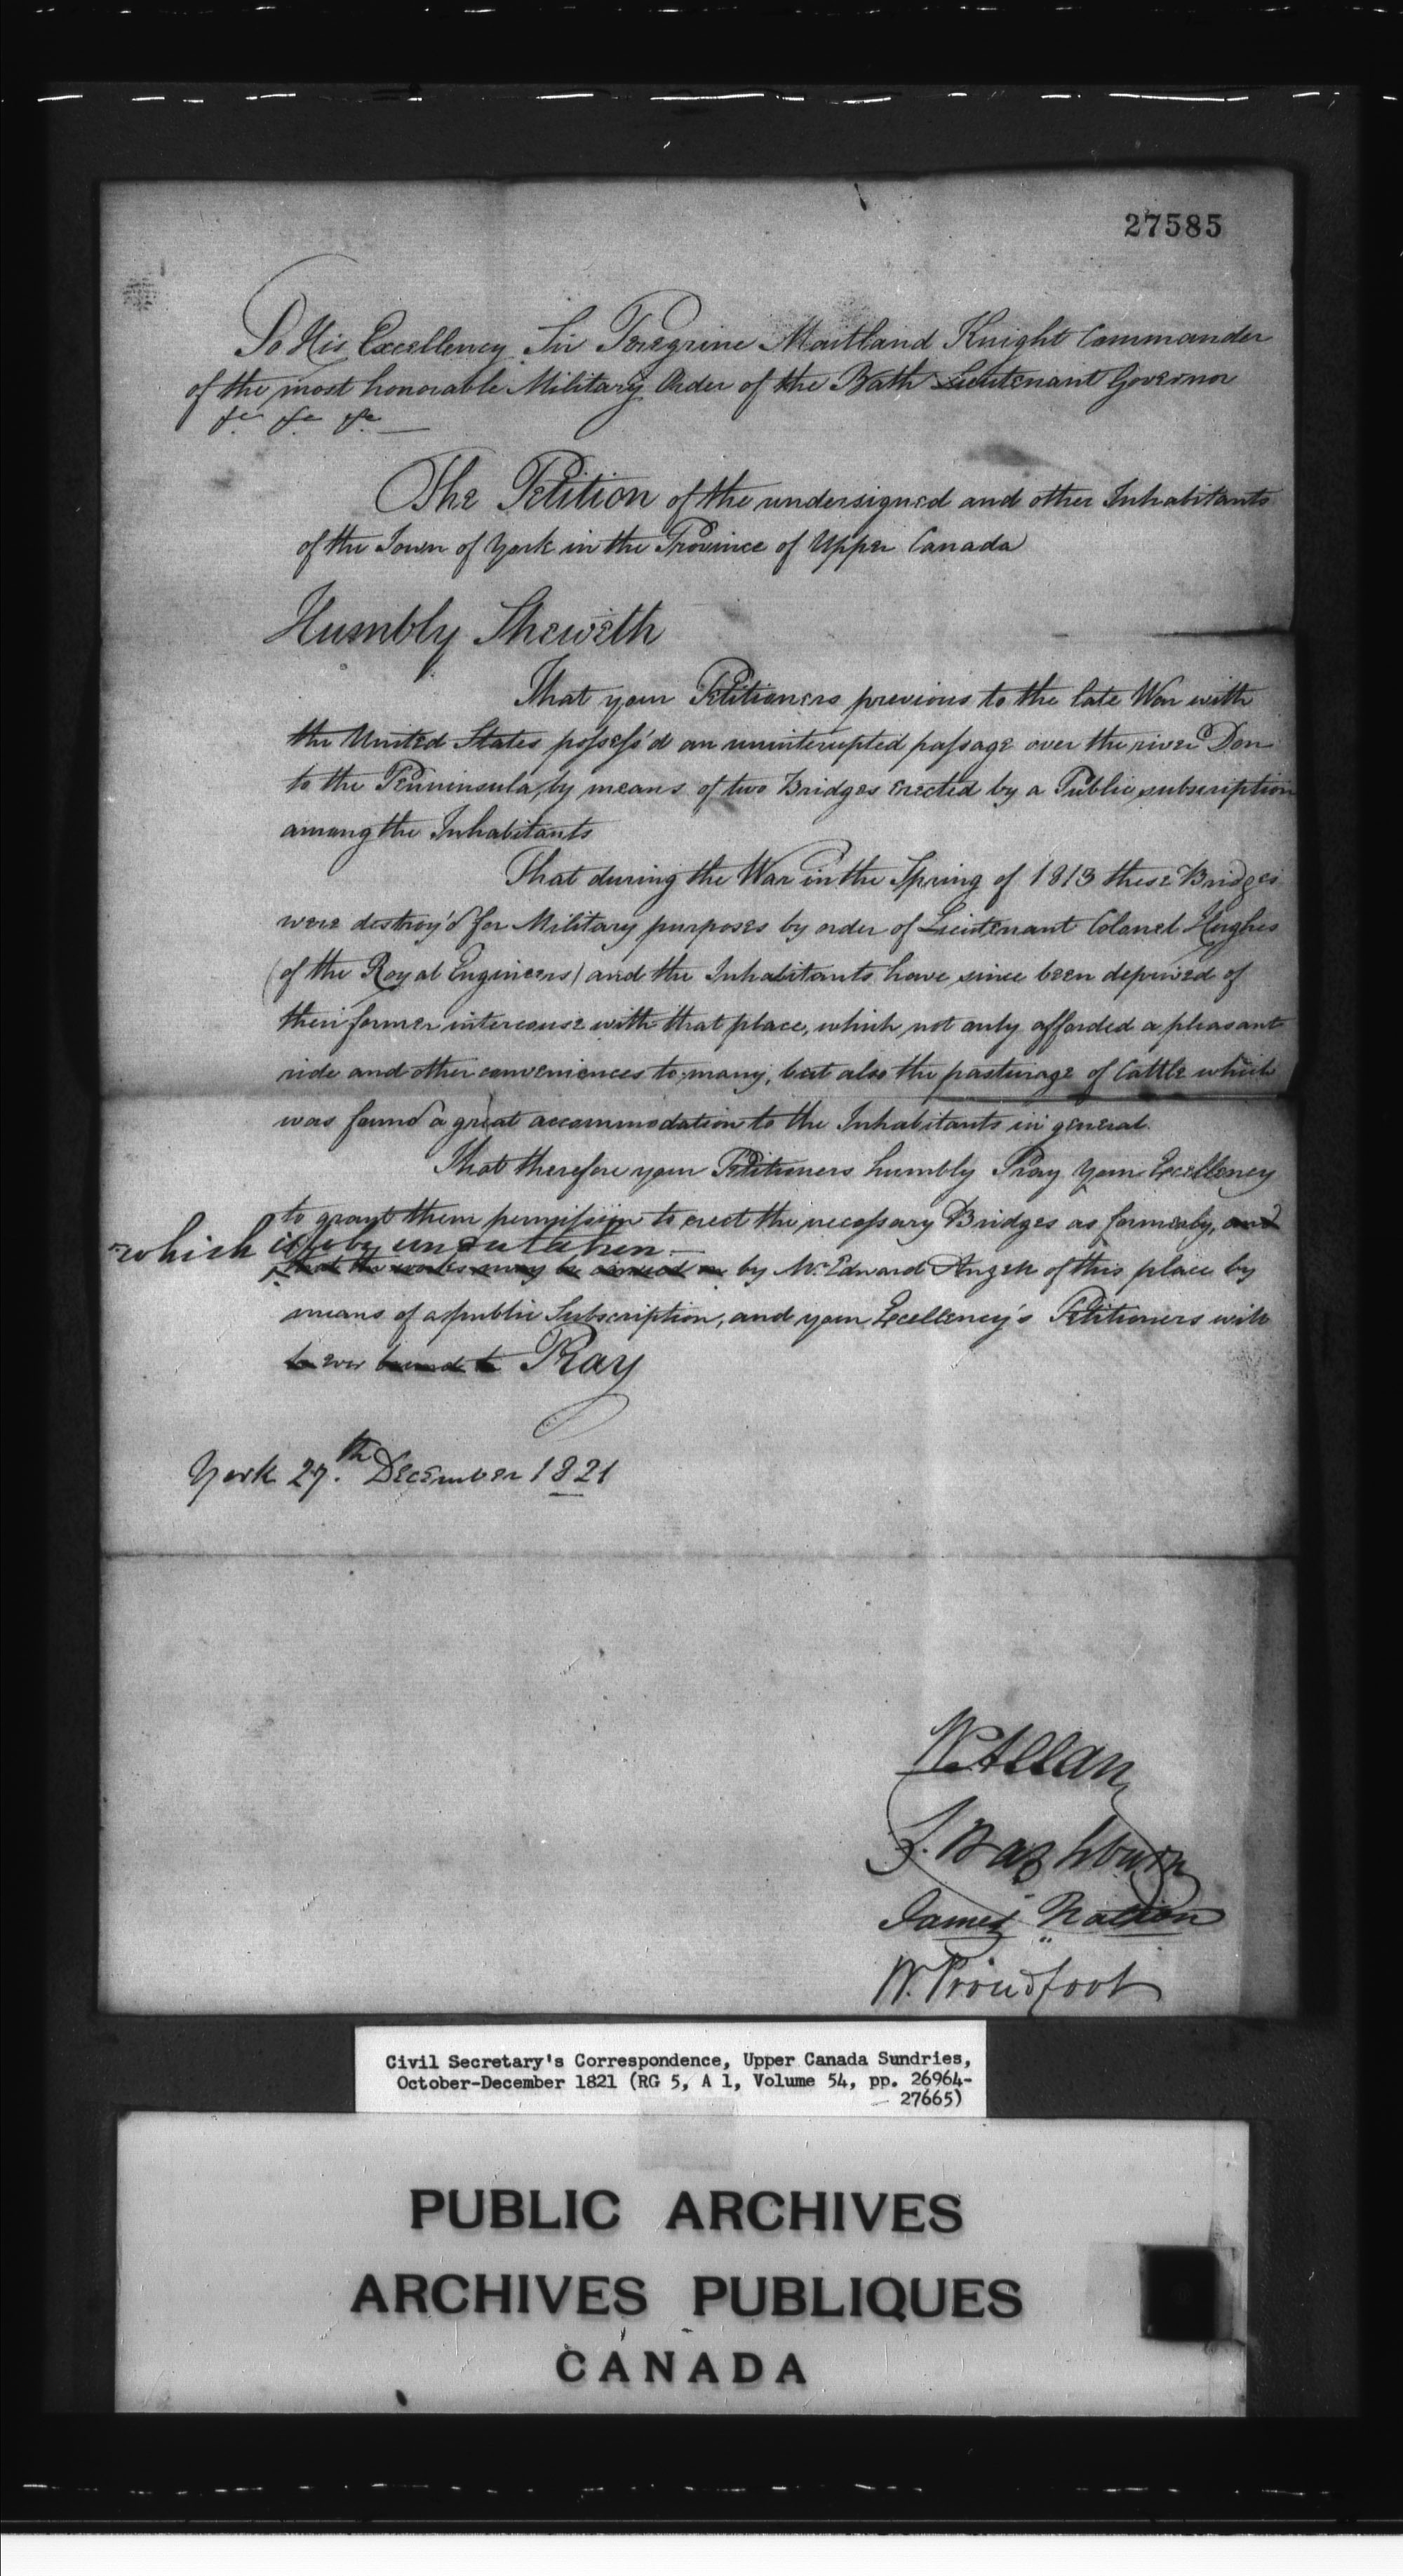 27585
To His Excellency Sir Peregrine Maitland Knight Commander
of the most honorable Military Order of the Bath Lieutenant Governor
&c &c &c
The Petition of the undersigned and other Inhabitants
of the Town of York in the Province of Upper Canada
Humbly Sheweth
That your Petitioners previous to the late War with
the United States possess'd an uninterupted passage over the river Don
to the Penninsula, by means of two Bridges erected by a Public subscription
among the Inhabitants
That during the War in the Spring of 1813 these Bridges
were destroy'd for Military purposes by order of Lieutenant Colonel Hughes
(of the Royal Engineers) and the Inhabitants have since been deprived of
their former intercourse with that place, which not only afforded a pleasant
ride and other conveniences to many, but also the pasturage of Cattle which
was found a great accommodation to the Inhabitants in general.
That therefore your Petitioners humbly Pray Your Excellency
to grant them permission to erect the necessary Bridges as formerly, and
which is to be undertaken
that the works may be carried on by Mr. Edward Angell of this place by
means of a public Subscription, and your Excellency's Petitioners will
be ever bound to Pray
York 27.th December 1821
W. Allan
S. Washburn
James
W. Proudfoot
Civil Secretary's Correspondence, Upper Canada Sundries,
October-December 1821 (RG 5, A 1, Volume 54, pp. 26964-
27665)
PUBLIC ARCHIVES
ARCHIVES PUBLIQUES
CANADA